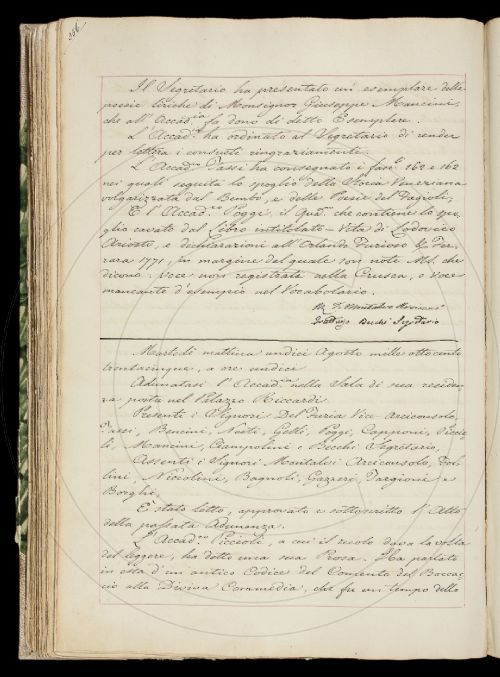 306.
Il Segretario ha presentato un' esemplare delle
poesie liriche di Monsignor Giuseppe Mancini,
che all' Accad.ia fa dono di detto Esemplare.
L' Accad.ia ha ordinato al Segretario di render
per lettera i consueti ringraziamenti.
L' Accad.co Tassi ha consegnato i fasc. 161 e 162
nei quali seguita lo spoglio della Storia Veneziana
volgarizzata dal Bembo, e delle Poesie del Fagioli,
E l' Accad.co Poggi il Qua.no che contiene lo spo-
glio cavato dal libro intitolato = Vita di Lodovico
Ariosto, e dichiarazioni all' Orlando Furioso & Fer-
rara 1771, in margine del quale son note MS. che
dicono: Voce non registrata nella Crusca, o Voce
mancante d' esempio nel Vocabolario.
Segretario
Martedì mattina undici Agosto mille ottocento
trentacinque, a ore undici
Adunatasi l' Accad.ia nella Sala di sua residen-
za posta nel Palazzo Riccardi.
Presenti i Signori Del Furia Vice Arciconsolo,
Tassi, Bencini, Nesti, Gelli, Poggi, Capponi, Piccio-
li, Mancini, Ciampolini e Becchi Segretario,
Assenti i Signori Montalvi Arciconsolo, Fol-
lini, Niccolini, Bagnoli, Gazzeri, Targioni e
Borghi,
E' stato letto, approvato e sottoscritto l' Atto
della passata Adunanza.
L' Accad.co Piccioli, a cui il ruolo dava la volta
del leggere, ha detto una sua Prosa. Ha parlato
in essa di un' antico Codice del Comento del Boccac-
cio alla Divina Commedia, che fu un tempo dello